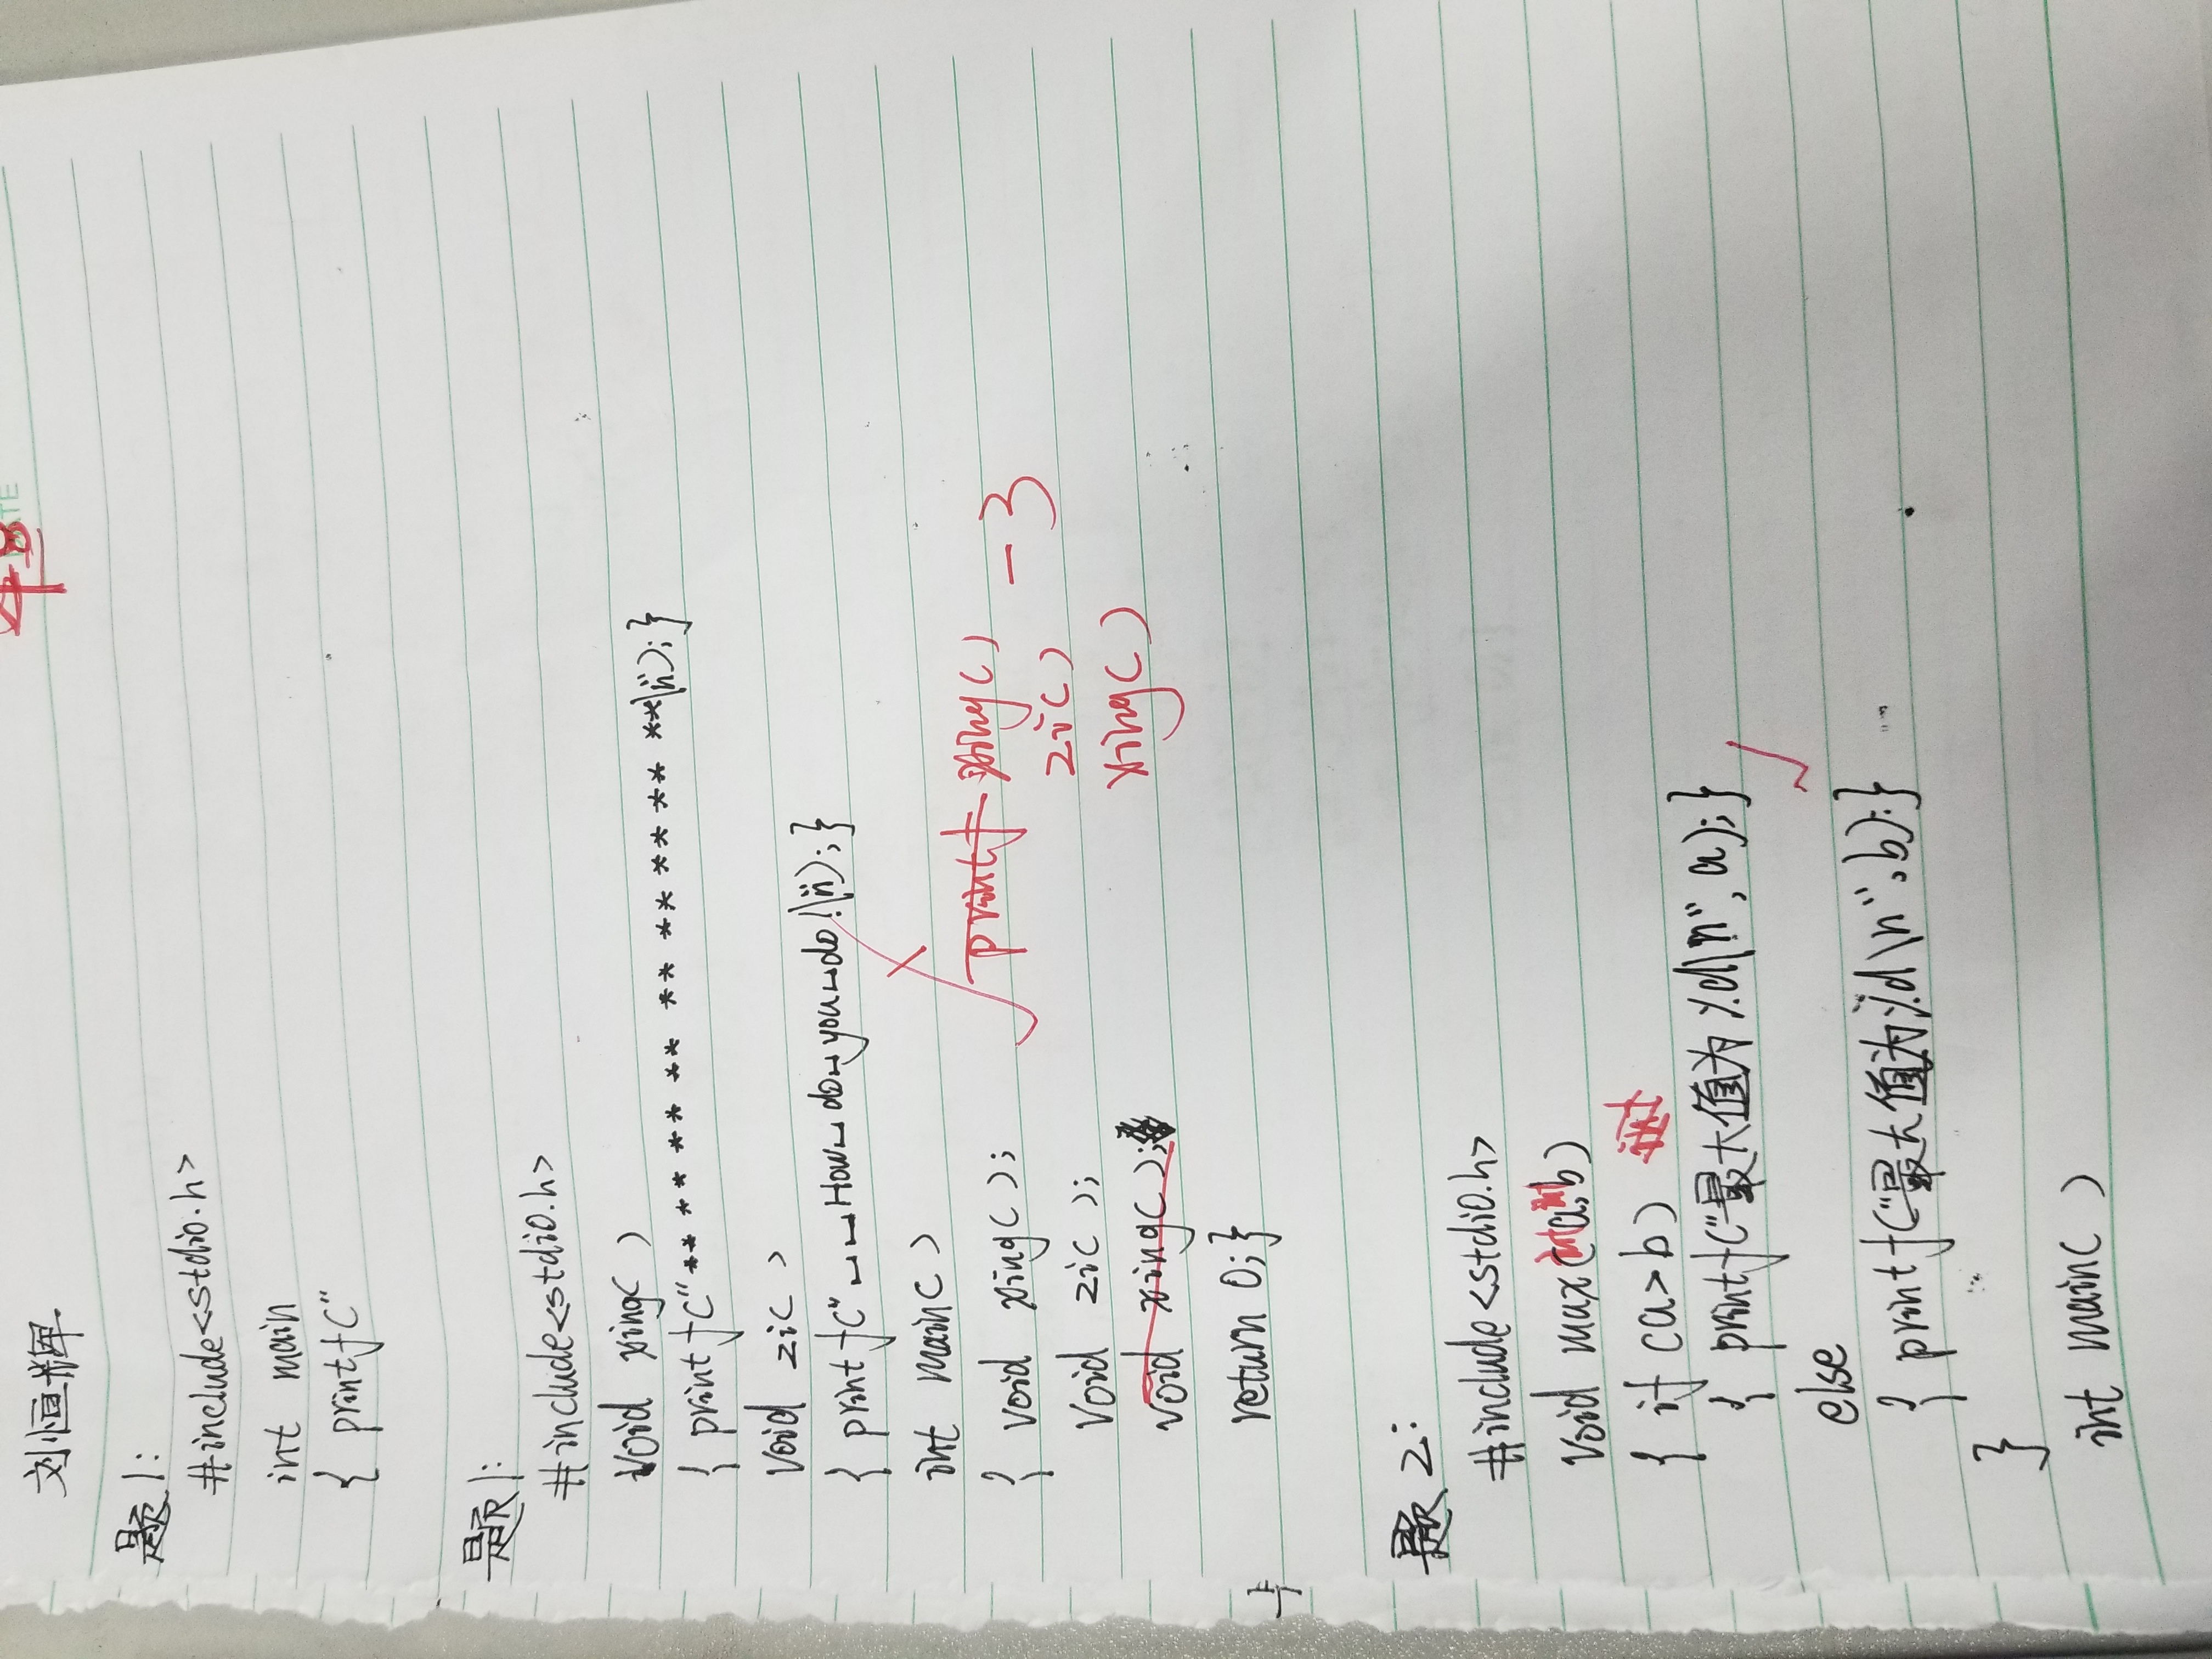 刘恒辉
DATE
题1:
#include<stdio.h>
int main
{ printf("
题1:
#include<stdio.h>
void xing( )
{ printf("** ** ** ** ** ** ** ** **\n");}
void zi( )
{ printf("␣␣How␣do␣you␣do!\n");}
int main( )
{ void xing( );
printf xing( )
-3
void zi( );
zi( )
void xing( );
xing( )
return 0;}
题2:
#include<stdio.h>
void max(int a,int b)
{ if (a>b) int
{ printf("最大值为%d\n", a);}
else
{ printf("最大值为%d\n",b);}
}
int main( )